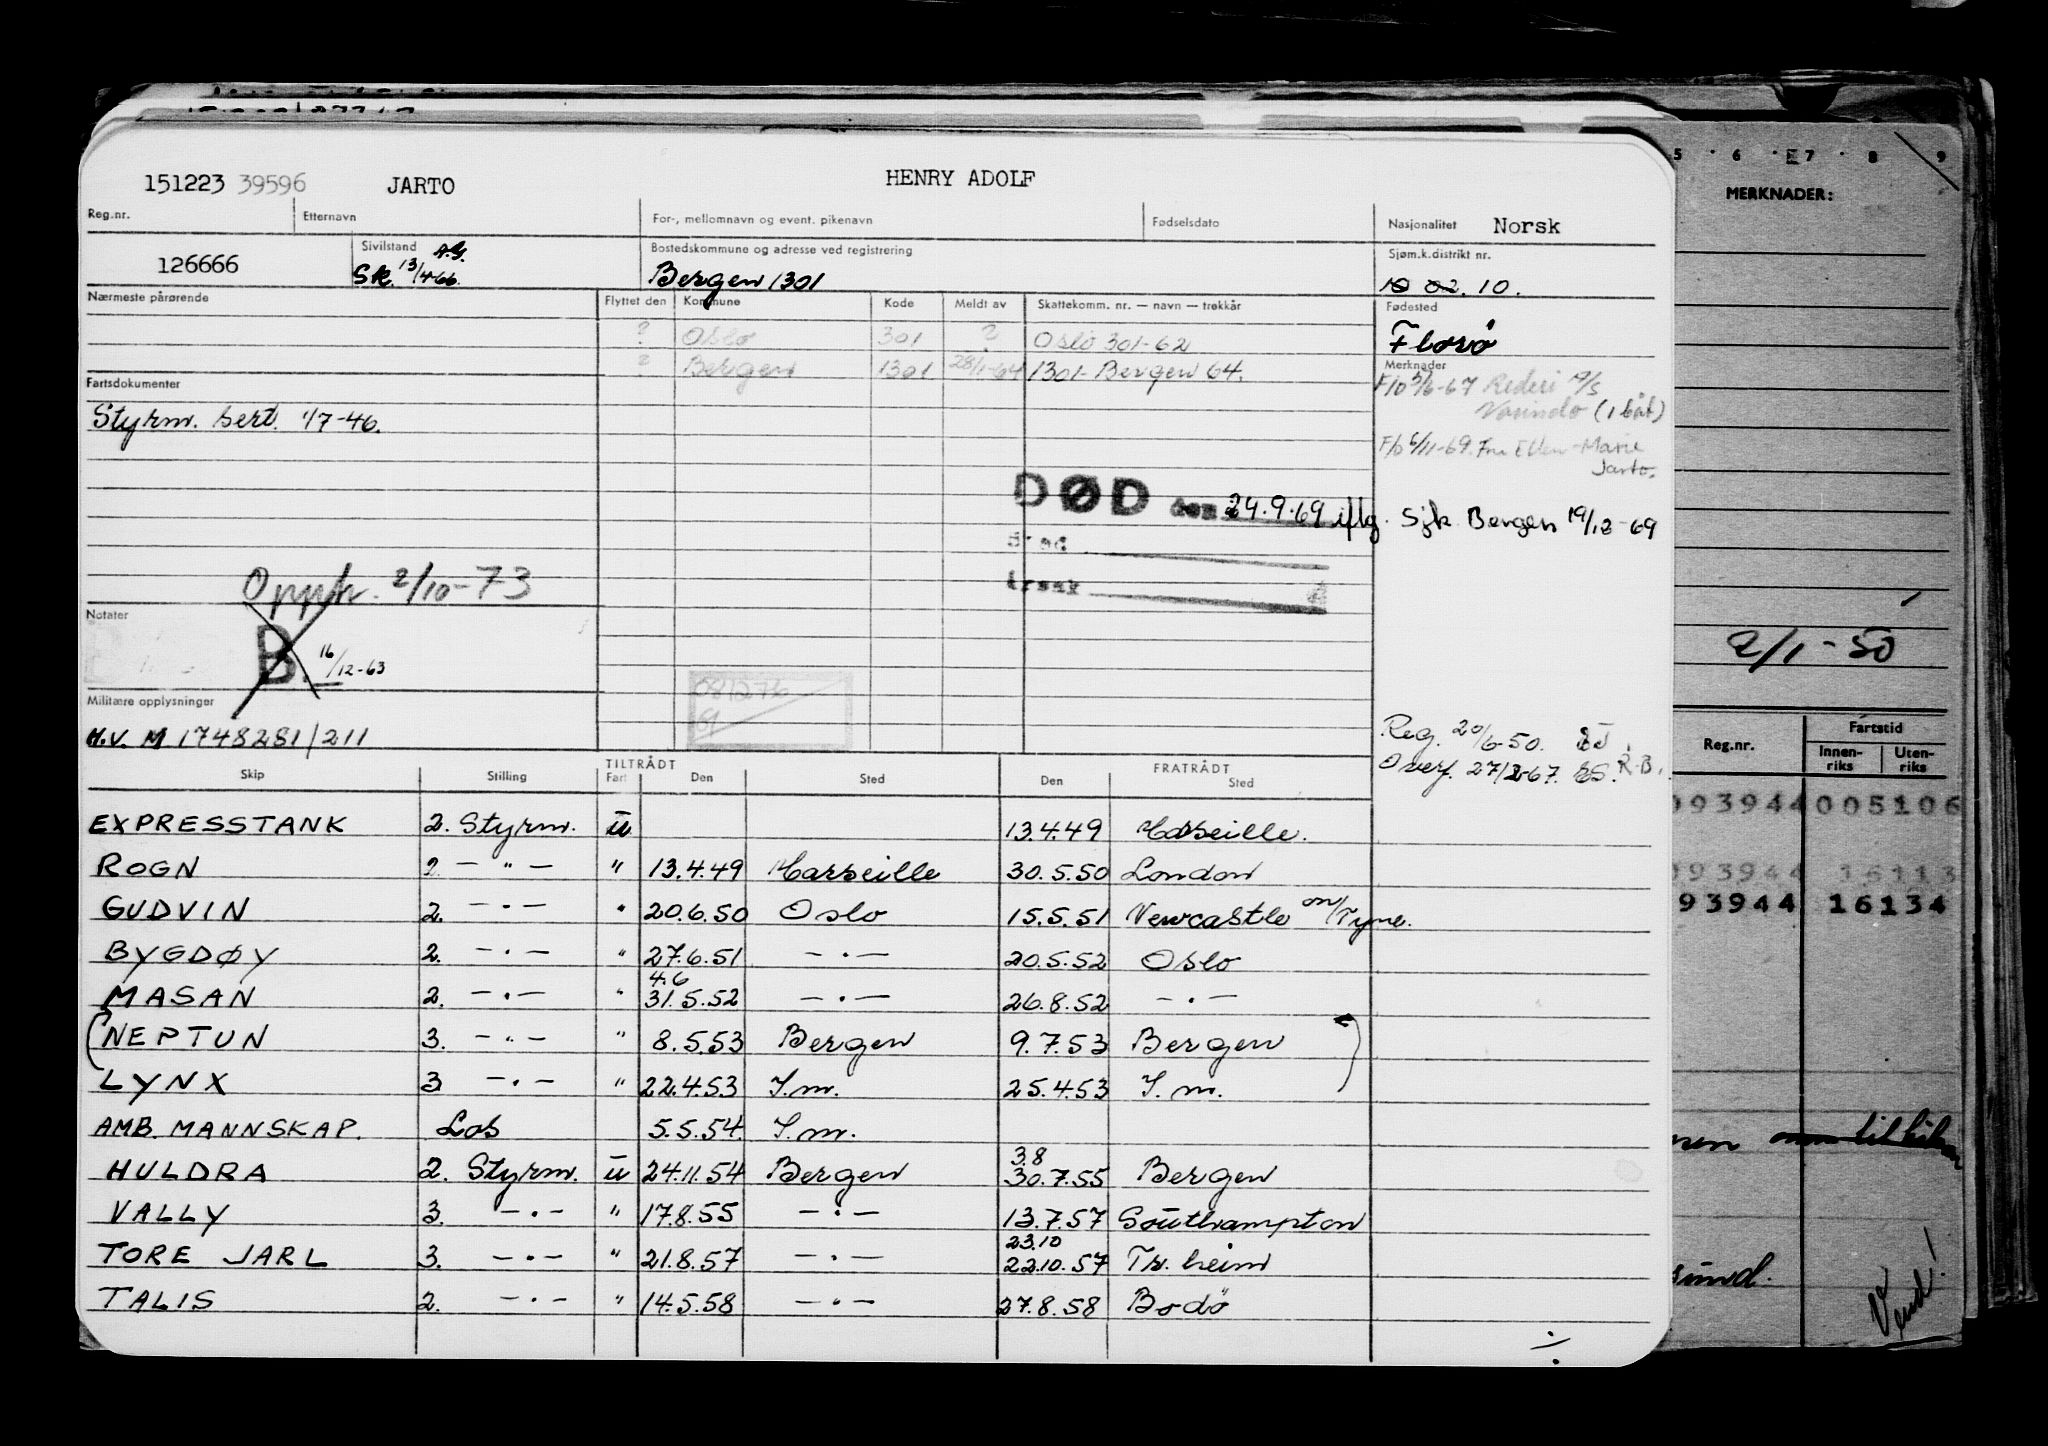 151223 39596 JARTO HENRY ADOLF
Reg.nr. Etternavn For-, mellomnavn og event. pikenavn Fødselsdato Nasjonalitet Norsk
126666 Sivilstand Sk. 13/4-66. A.G. Bostedskommune og adresse ved registrering Bergen 1301 Sjøm.k.distrikt nr. 10 02. 10.
Nærmeste pårørende Flyttet den Kommune Kode Meldt av Skattekomm. nr. — navn — trekkår Fødested
? Oslo 301 ? Oslo 301-62 Florö
? Bergen 1301 28/1-64 1301-Bergen 64. Merknader
Fartsdokumenter F/o 5/6-67 Rederi A/S
Styrm. sert. 1/7-46. (1 båt)
F/o 6/11-69. Fru Ellen-Marie
Jarto.
DØD den 24.9.69 iflg. Sjk. Bergen 19/12-69
Sted
årsak
Opph. 2/10-73
Notater
B. 16/12-63
081276
Militære opplysninger
H.V. M 1748281/211
Reg. 20/6-50.
Overf. 27/12-67. R.B.
Skip Stilling TILTRÅDT Fart Den Sted FRATRÅDT Den Sted
EXPRESSTANK 2. Styrm. u 13.4.49 Marseille.
ROGN 2. — " — " 13.4.49 Marseille 30.5.50 London
GUDVIN 2. — " — " 20.6.50 Oslo 15.5.51 Newcastle on/Tyne.
BYGDØY 2. — " — " 27.6.51 — " — 20.5.52 Oslo
4.6
MASAN 2. — " — " 31.5.52 — " — 26.8.52 — " —
(NEPTUN 3. — " — " 8.5.53 Bergen 9.7.53 Bergen
LYNX 3 — " — " 22.4.53 S.m. 25.4.53 S.m.
AMB. MANNSKAP. Los 5.5.54. S.m.
3.8
HULDRA 2. Styrm. u 24.11.54 Bergen 30.7.55 Bergen
VALLY 3. — " — " 17.8.55 — " — 13.7.57 Southampton
23.10
TORE JARL 3. — " — " 21.8.57 — " — 22.10.57 Tr.heim
TALIS 2. — " — " 14.5.58 — " — 27.8.58 Bodö
5 · 6 · 7 · 8 9
MERKNADER:
2/1-50
Reg.nr. Fartstid
Innen-riks Uten-riks
093944 005106
093944 16113
93944 16134
Vend!